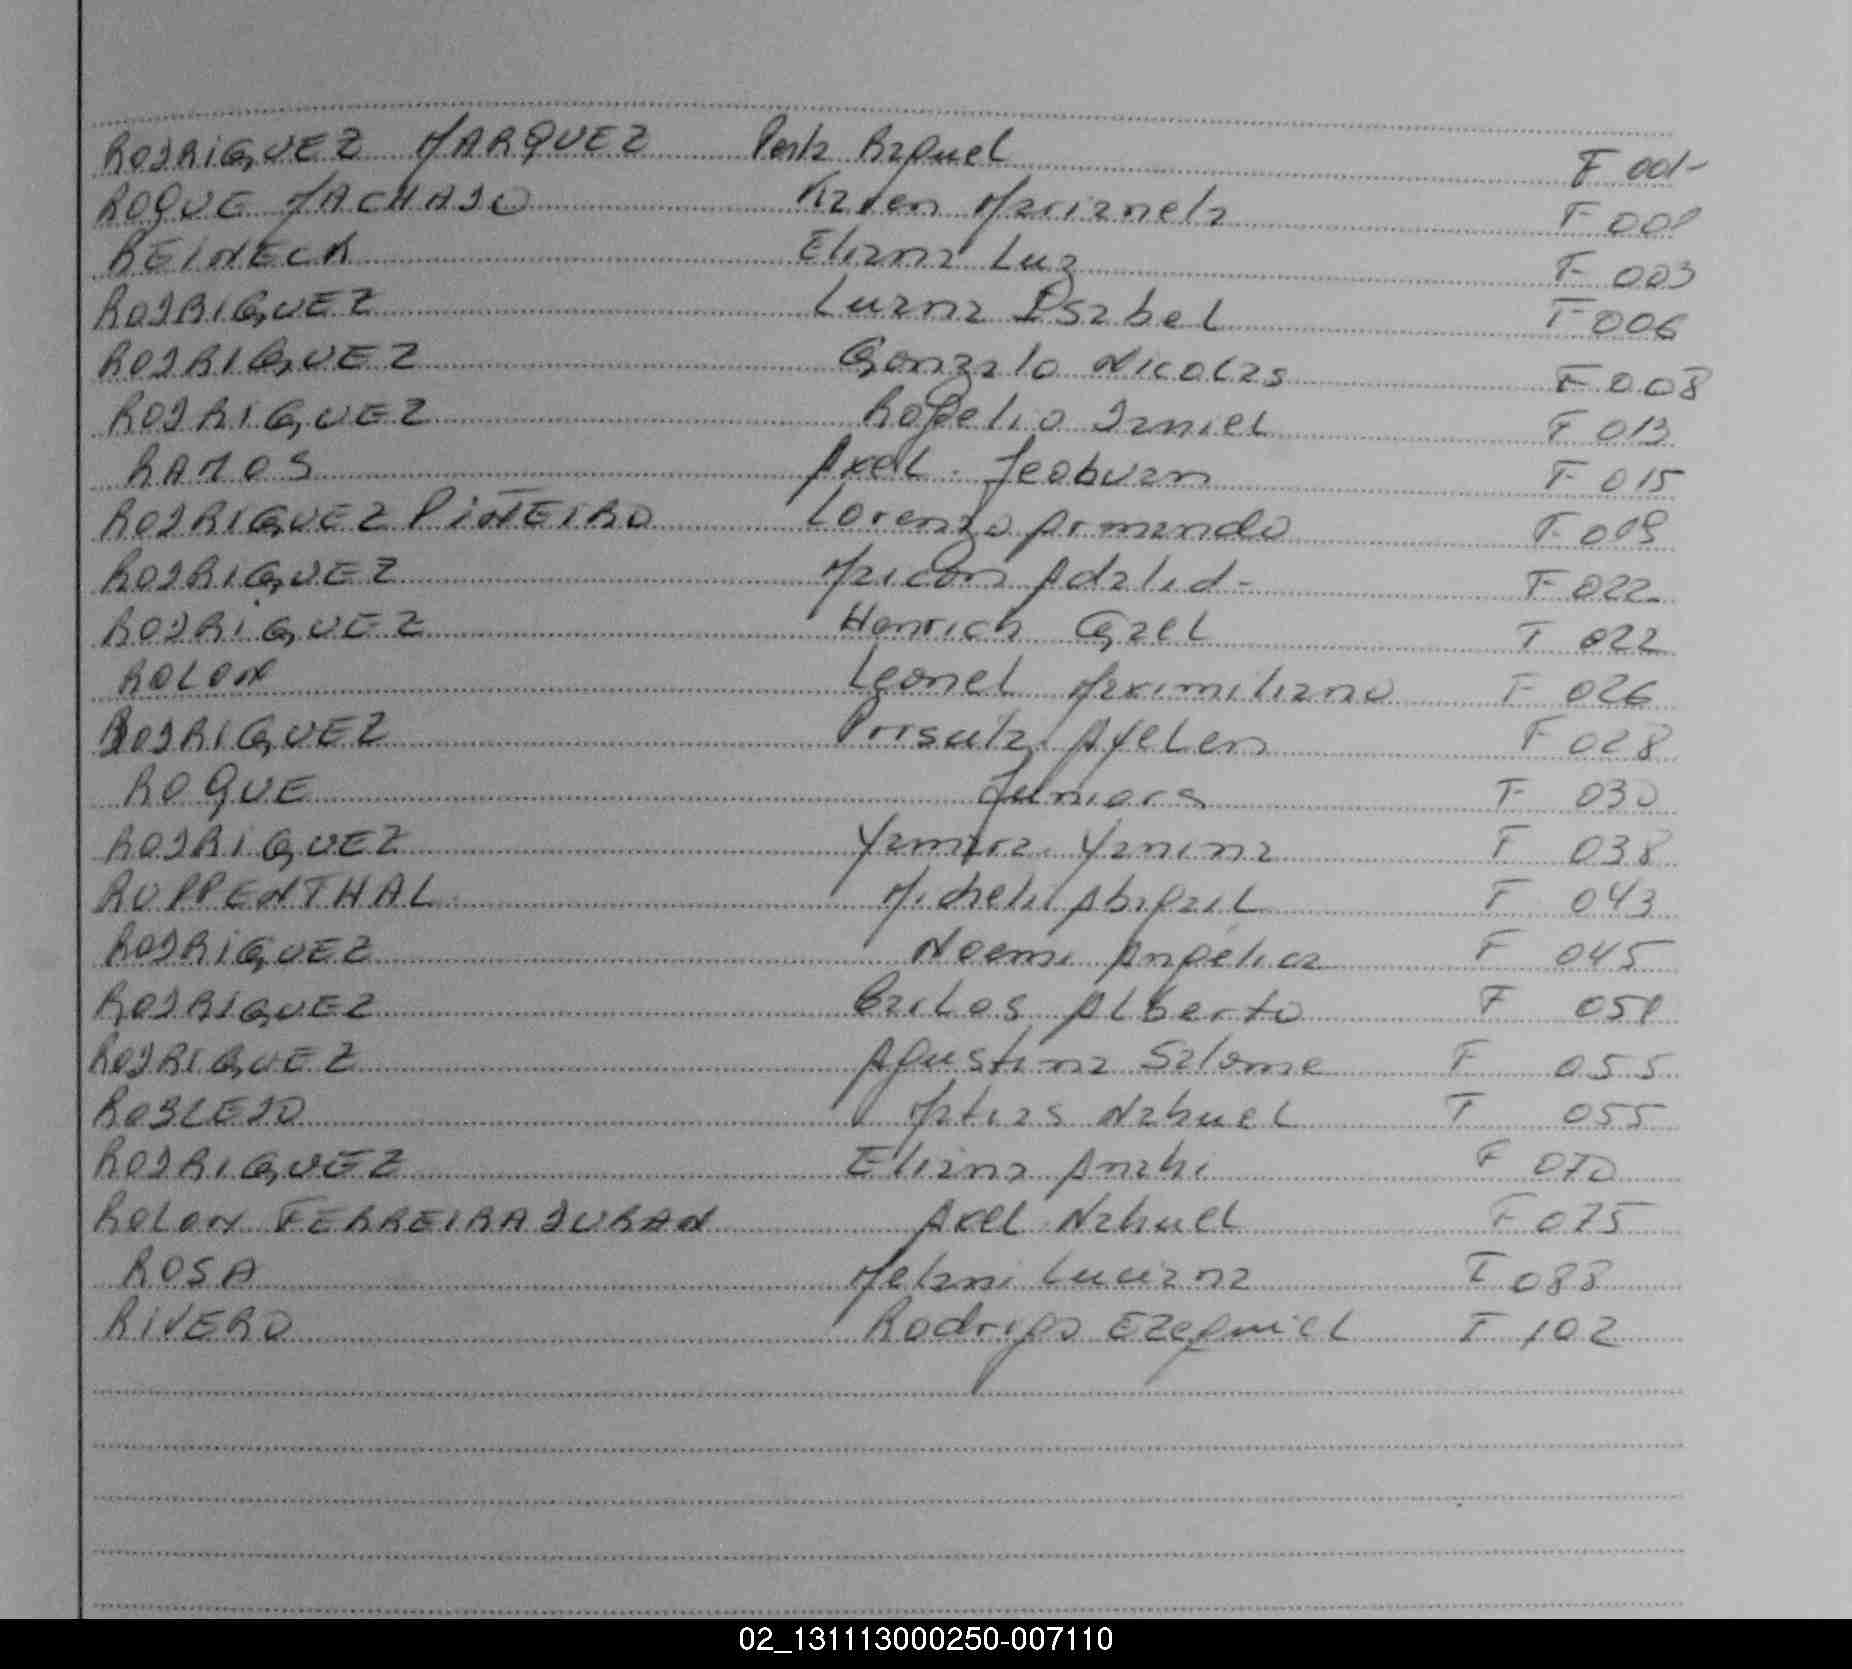 RODRIGUEZ MARQUEZ Perla Raquel F 001-
ROQUE MACHADO Karen Marianela F 001
REINECK Eliana Luz F 003
RODRIGUEZ Luana Isabel F 006
RODRIGUEZ Gonzalo Nicolas F 008
RODRIGUEZ Rogelio Daniel F 013
RAMOS Axel F 015
RODRIGUEZ PIÑEIRO Lorenzo Armando F 019
RODRIGUEZ Maicon Adalid - F 022
RODRIGUEZ Henrich Gael F 022
ROLON Leonel Maximiliano F 026
RODRIGUEZ Ayelen F 028
ROQUE Juniors F 030
RODRIGUEZ Yamira Yanina F 038
RUPPENTHAL Micheli Abigail F 043
RODRIGUEZ Noemi Angélica F 045
RODRIGUEZ Carlos Alberto F 051
RODRIGUEZ Agustina Salome F 055
ROBLEDO Matias Nahuel F 055
RODRIGUEZ Eliana Anahi F 070
ROLON FERREIRA DURAN Axel Nahuel F 075
ROSA Melani Luciana F 088
RIVERO Rodrigo Ezequiel F 102
02_131113000250-007110